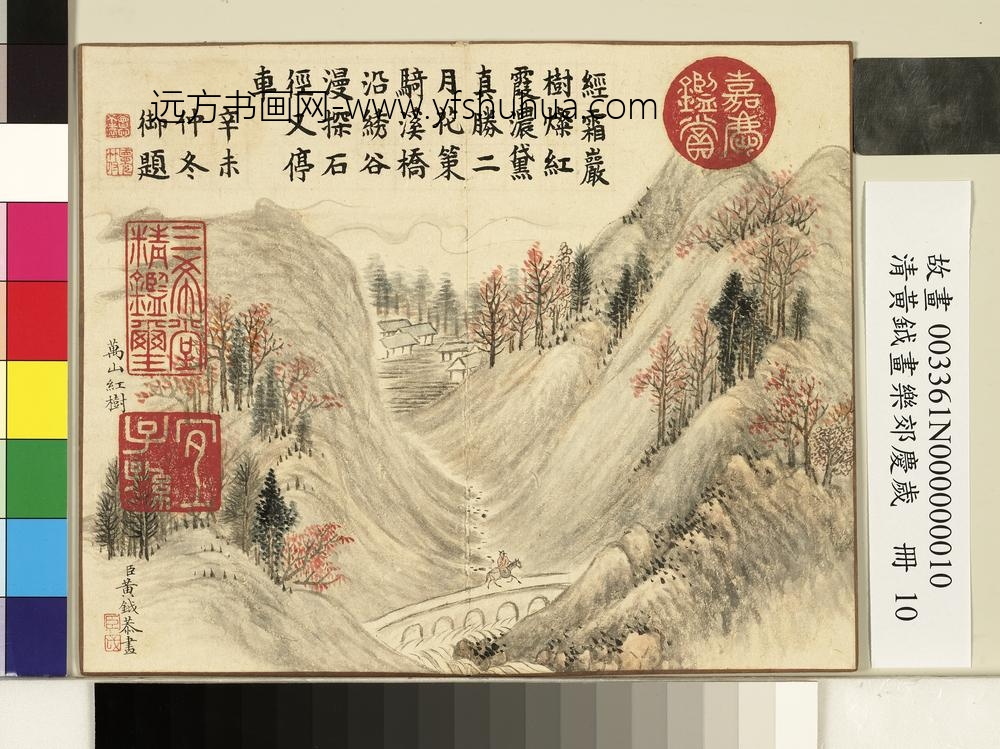 嘉慶
鑑賞
經霜巖
樹燦紅
霞濃黛
真勝二
月花策
騎溪橋
沿綉谷
漫探石
徑又停
車
辛未
仲冬
御題
远方书画网-www.yfshuhua.com
三希堂
精鑑璽
萬山紅樹
宜
子孫
臣黃鉞恭畫
故畫 003361N000000010
清黃鉞畫樂郊慶歲 冊 10